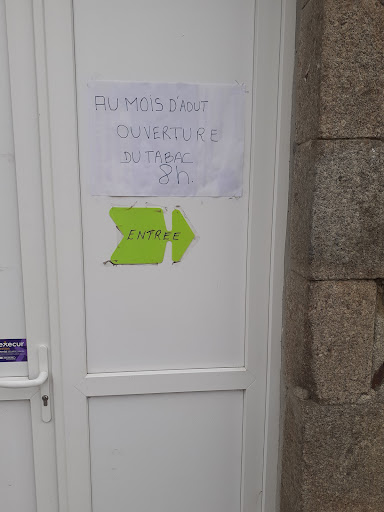 AU MOIS D'AOUT
OUVERTURE
DU TABAC
8h.
ENTREE